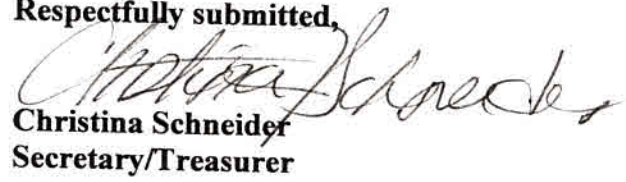 Respectfully submitted,
Christina Schneider
Christina Schneider
Secretary/Treasurer